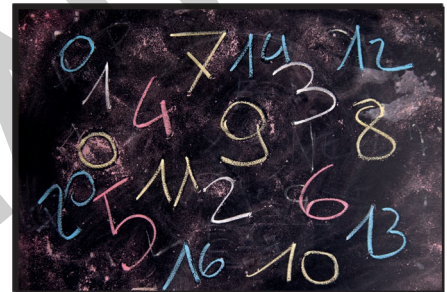 0 7 14 12
1 4 3
0 9 8
20 5 11 2 6 13
16 10